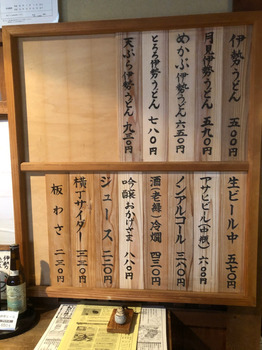 伊勢うどん 五〇〇円
月見伊勢うどん 五九〇円
めかぶ伊勢うどん 六五〇円
とろろ伊勢うどん 七八〇円
天ぷら伊勢うどん 九三〇円
生ビール中 五七〇円
アサヒビール(中瓶) 六〇〇円
ノンアルコール 三八〇円
酒(老緑)冷燗 四三〇円
吟醸おかげさま 八八〇円
ジュース 二二〇円
横丁サイダー 三三〇円
板わさ 二三〇円